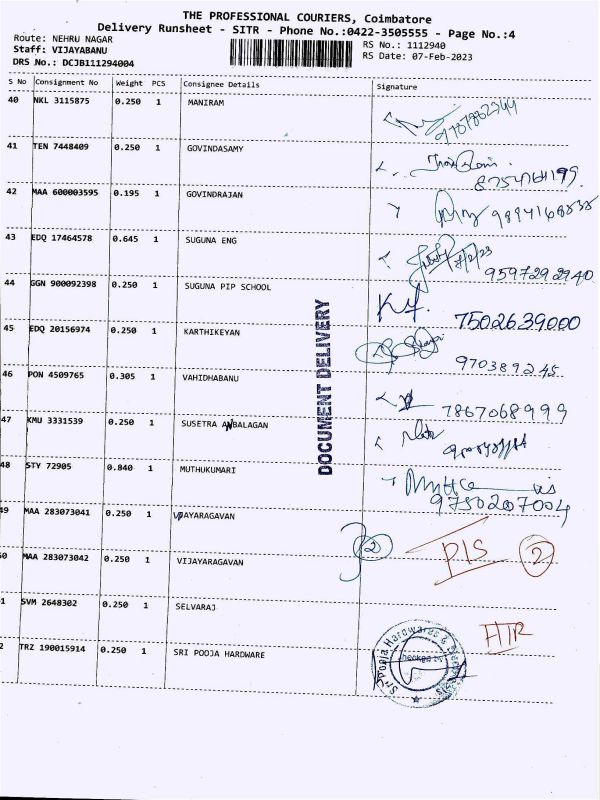 THE PROFESSIONAL COURIERS, Coimbatore
Delivery Runsheet - SITR - Phone No.:0422-3505555 - Page No.:4
Route: NEHRU NAGAR
RS No.: 1112940
Staff: VIJAYABANU
RS Date: 07-Feb-2023
DRS No.: DCJB111294004
S No Consignment No Weight PCS Consignee Details Signature
40 NKL 3115875 0.250 1 MANIRAM
41 TEN 7448409 0.250 1 GOVINDASAMY
42 MAA 600003595 0.195 1 GOVINDRAJAN
43 EDQ 17464578 0.645 1 SUGUNA ENG 7/2/23
9597292940
44 GGN 900092398 0.250 1 SUGUNA PIP SCHOOL
7502639000
45 EDQ 20156974 0.250 1 KARTHIKEYAN
970389245
46 PON 4509765 0.305 1 VAHIDHABANU
7867068999
47 KMU 3331539 0.250 1 SUSETRA ANBALAGAN
48 STY 72905 0.840 1 MUTHUKUMARI
9750207004
49 MAA 283073041 0.250 1 VIJAYARAGAVAN
2 DIS 2
50 MAA 283073042 0.250 1 VIJAYARAGAVAN
1 SVM 2648302 0.250 1 SELVARAJ
HTR
2 TRZ 190015914 0.250 1 SRI POOJA HARDWARE
DOCUMENT DELIVERY
Sri Pooja Hardwares &